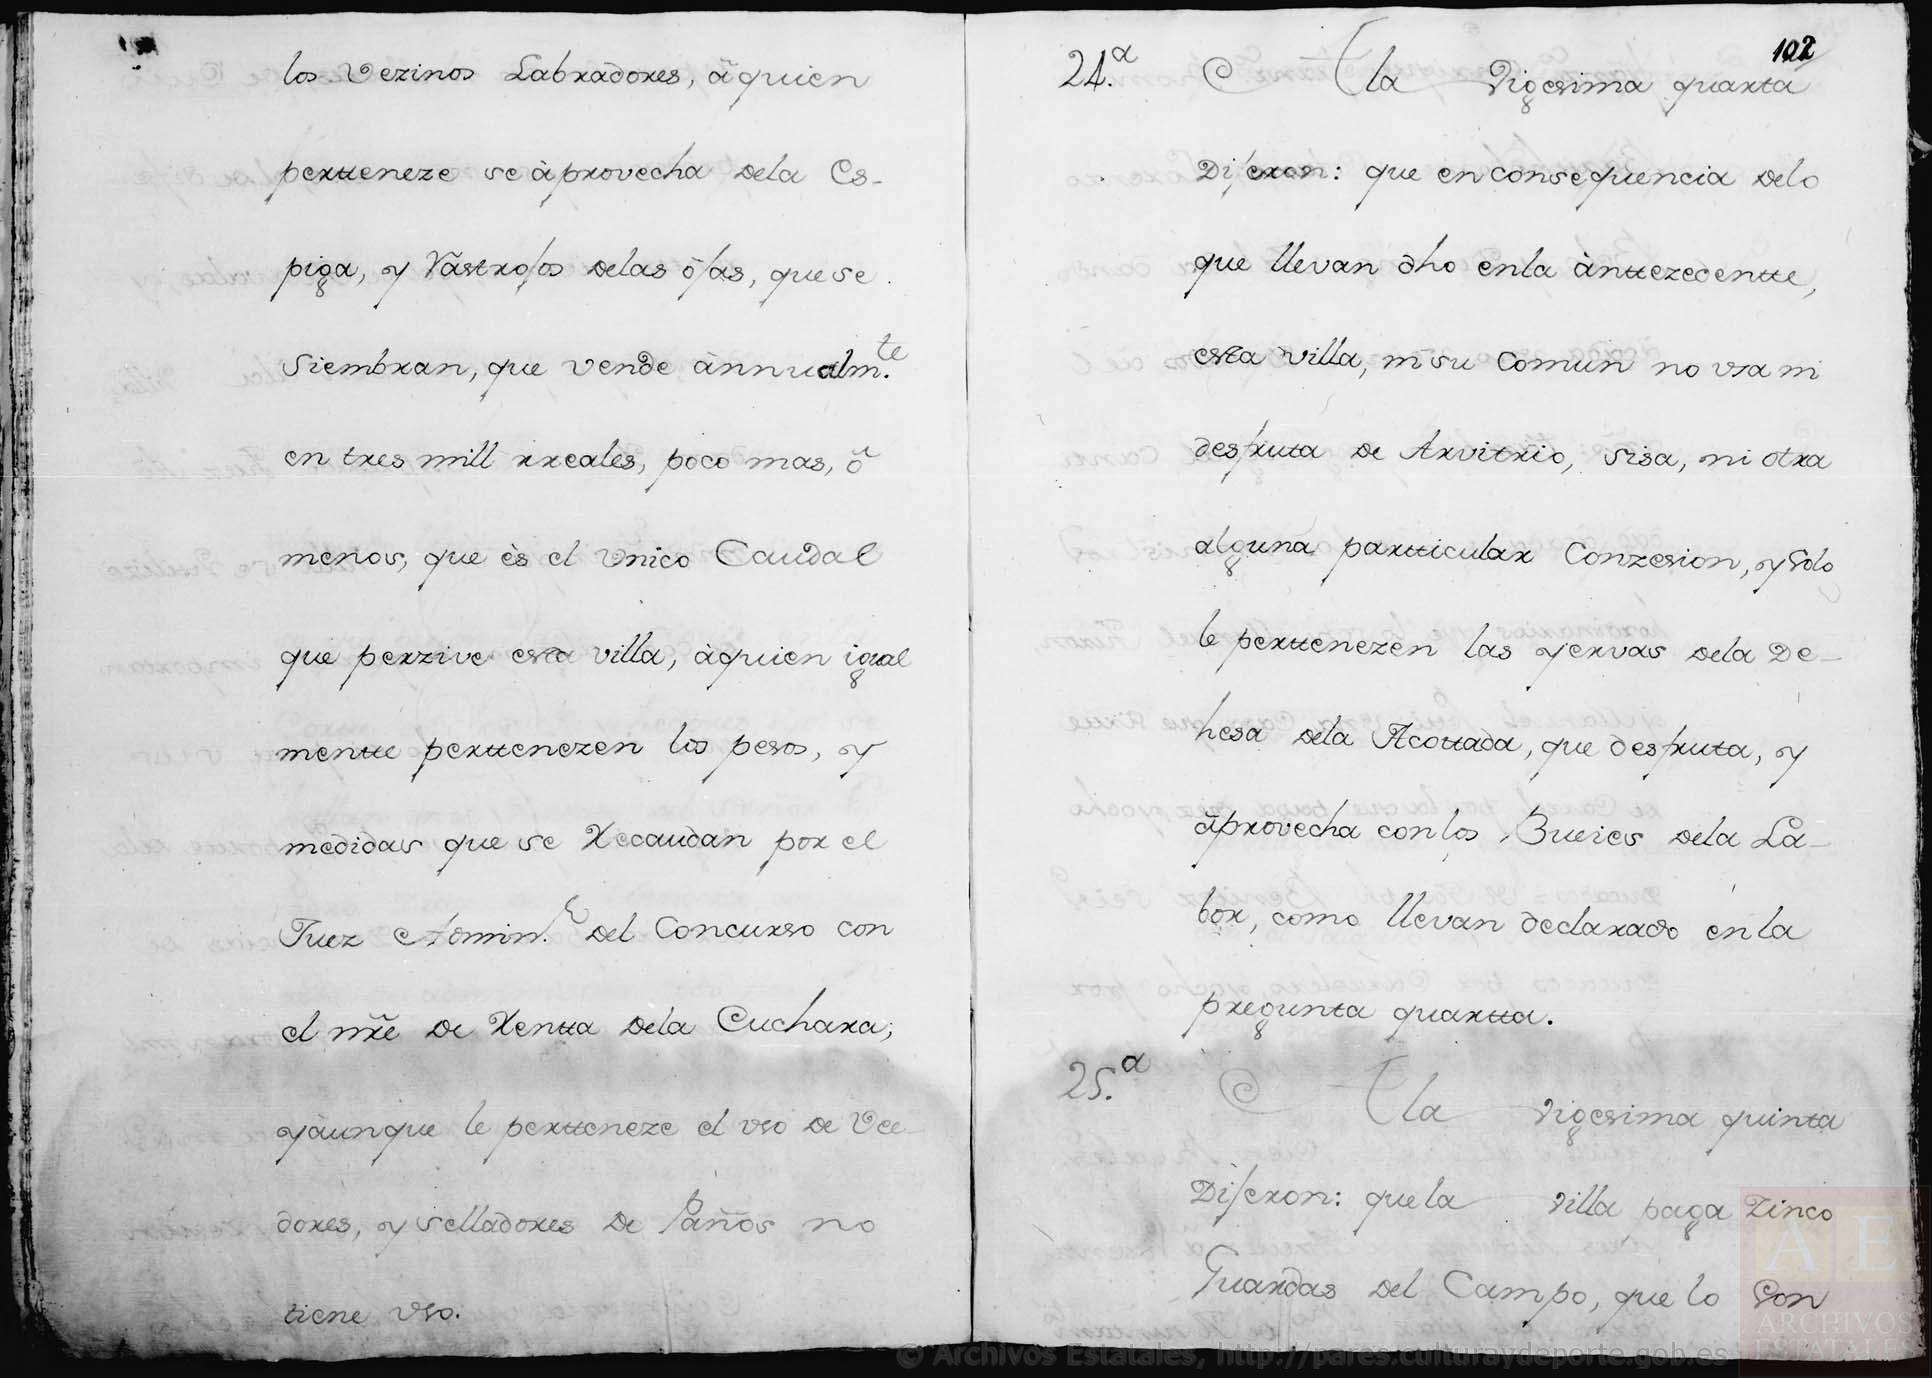 los Vezinos Labradores, â quien
pertteneze se àprovecha dela Es-
piga, y Rastrojos delas ôjas, que se
Siembran, que vende ànnualm.te
en tres mill rreales, poco mas, ô
menos, que ès el Vnico Caudal
que perzive esta villa, àquien igual
mentte perttenezen los pesos, y
medidas que se Recaudan por el
Juez Admin.r del Concurso con
el nr̃e de Rentta dela Cuchara;
yàunque le pertteneze el vso de Vee-
dores, y selladores de Paños no
tiene vso.
102
24.a A la Vigesima quarta
Dijeron: que en consequencia delo
que llevan dho enla ànttezedentte,
esta villa, ni su Comun no vsa ni
desfruta de Arvitrio, sisa, ni otra
alguna partticular Conzesion, y solo
le perttenezen las yervas dela De-
hesa dela Acottada, que desfruta, y
âprovecha con los Bueies dela La-
bor, como llevan declarado en la
pregunta quartta.
25.a A la vigesima quinta
Dijeron: que la villa paga Zinco
Guardas del Campo, que lo son
AE
ARCHIVOS
ESTATALES
© Archivos Estatales, http://pares.culturaydeporte.gob.es